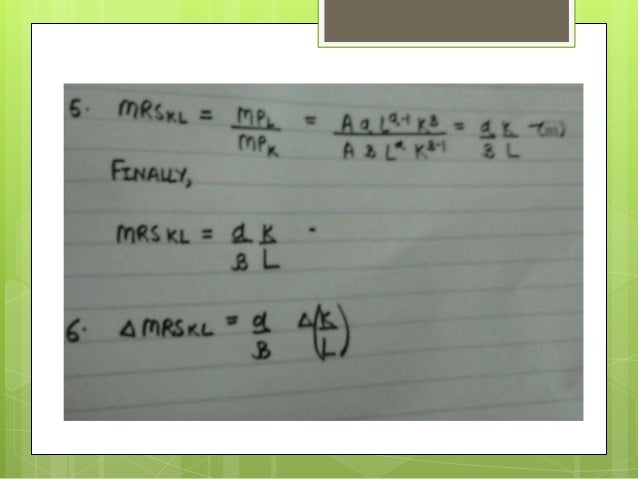 5. MRSKL = MPL / MPK = A α L^α-1 K^B / A B L^α K^B-1 = α K / B L -(iii)
FINALLY,
MRS KL = α K / B L .
6. Δ MRSKL = α / B Δ(K / L)